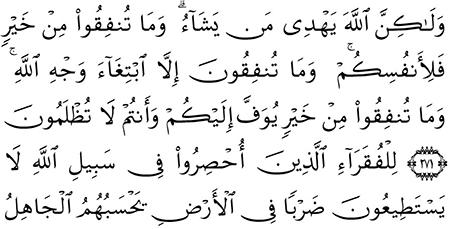 وَلَٰكِنَّ ٱللَّهَ يَهْدِى مَن يَشَآءُ ۗ وَمَا تُنفِقُوا۟ مِنْ خَيْرٍ
فَلِأَنفُسِكُمْ ۚ وَمَا تُنفِقُونَ إِلَّا ٱبْتِغَآءَ وَجْهِ ٱللَّهِ ۚ
وَمَا تُنفِقُوا۟ مِنْ خَيْرٍ يُوَفَّ إِلَيْكُمْ وَأَنتُمْ لَا تُظْلَمُونَ
﴿٢٧١﴾ لِلْفُقَرَآءِ ٱلَّذِينَ أُحْصِرُوا۟ فِى سَبِيلِ ٱللَّهِ لَا
يَسْتَطِيعُونَ ضَرْبًا فِى ٱلْأَرْضِ يَحْسَبُهُمُ ٱلْجَاهِلُ